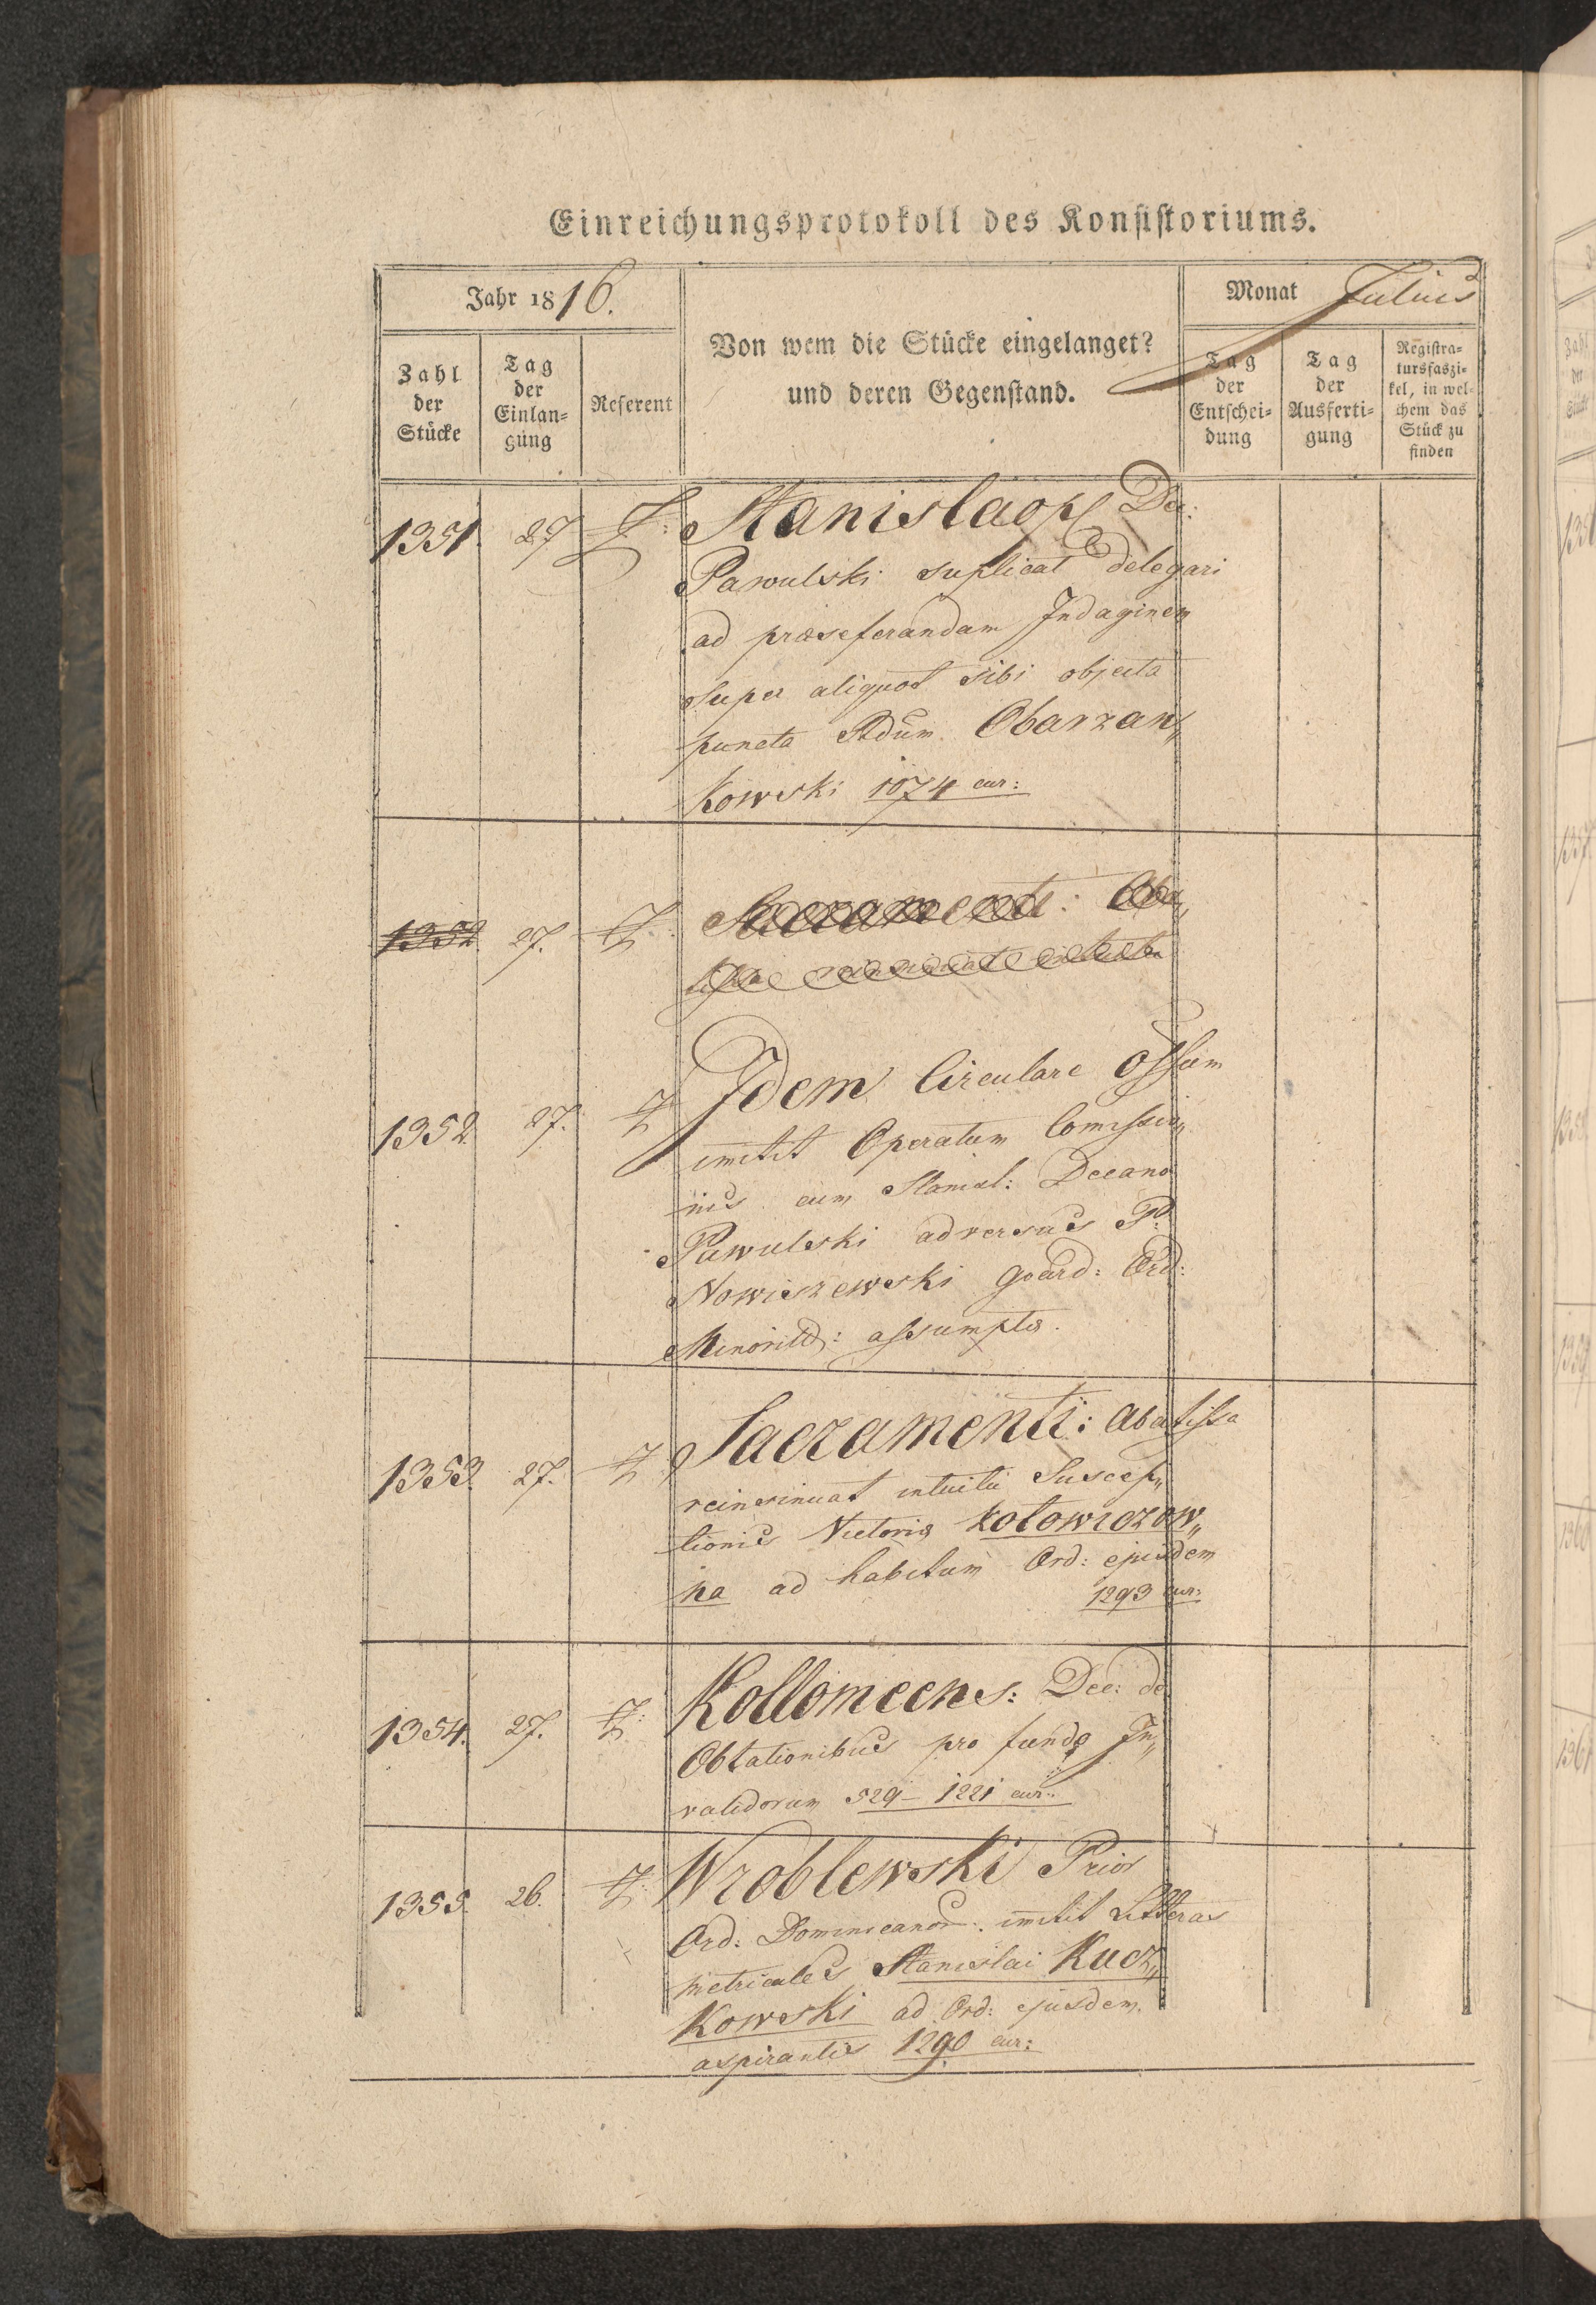 Einreichungsprotokoll des Konsistoriums.
Jahr 1816.
Monat Julius
Zahl der Stücke
Tag der Einlan=
gung
Referent
Von wem die Stücke eingelanget?
und deren Gegenstand.
Tag der Entschei=
dung
Tag der Ausferti=
gung
Registra=
tursfaszi=
kel, in wel=
chem das
Stück zu
finden
1351. 27 Stanislaop. Dec:
Pawulski suplicat delegari
ad præseferandam Indaginem
super aliquot sibi objecta
puncta Adum. Obarzan„
kowski 1074 cur:
1352. 27. Sacramenti: Aba„
1352. 27. Idem Circulare Offum
imitit Operatum Comissio„
nis cum Stanisl: Decano
Pawulski adversus P.
Nowiszewski Guard: Ord:
Minorit: assumpta.
1353. 27. Sacramenti: abatissa
reinsinuat intuitu Suscep„
tionis Victoria Kotowiczow„
na ad habitum Ord: ejusdem
1293 cur:
1354. 27. Kollomeens: Dec: de
Oblationibus pro fundo In„
validorum 529 – 1221 cur:
1355. 26. Wroblewski Prior
Ord: Dominicanor: imitit Litteras
metricales Stanislai Kucz„
kowski ad Ord: ejusdem.
aspirantis 1290 cur: